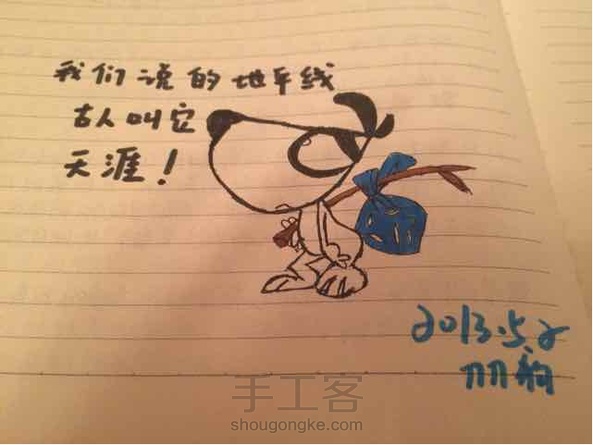 我们说的地平线
古人叫它
天涯！
2013.5.2
手工客
shougongke.com